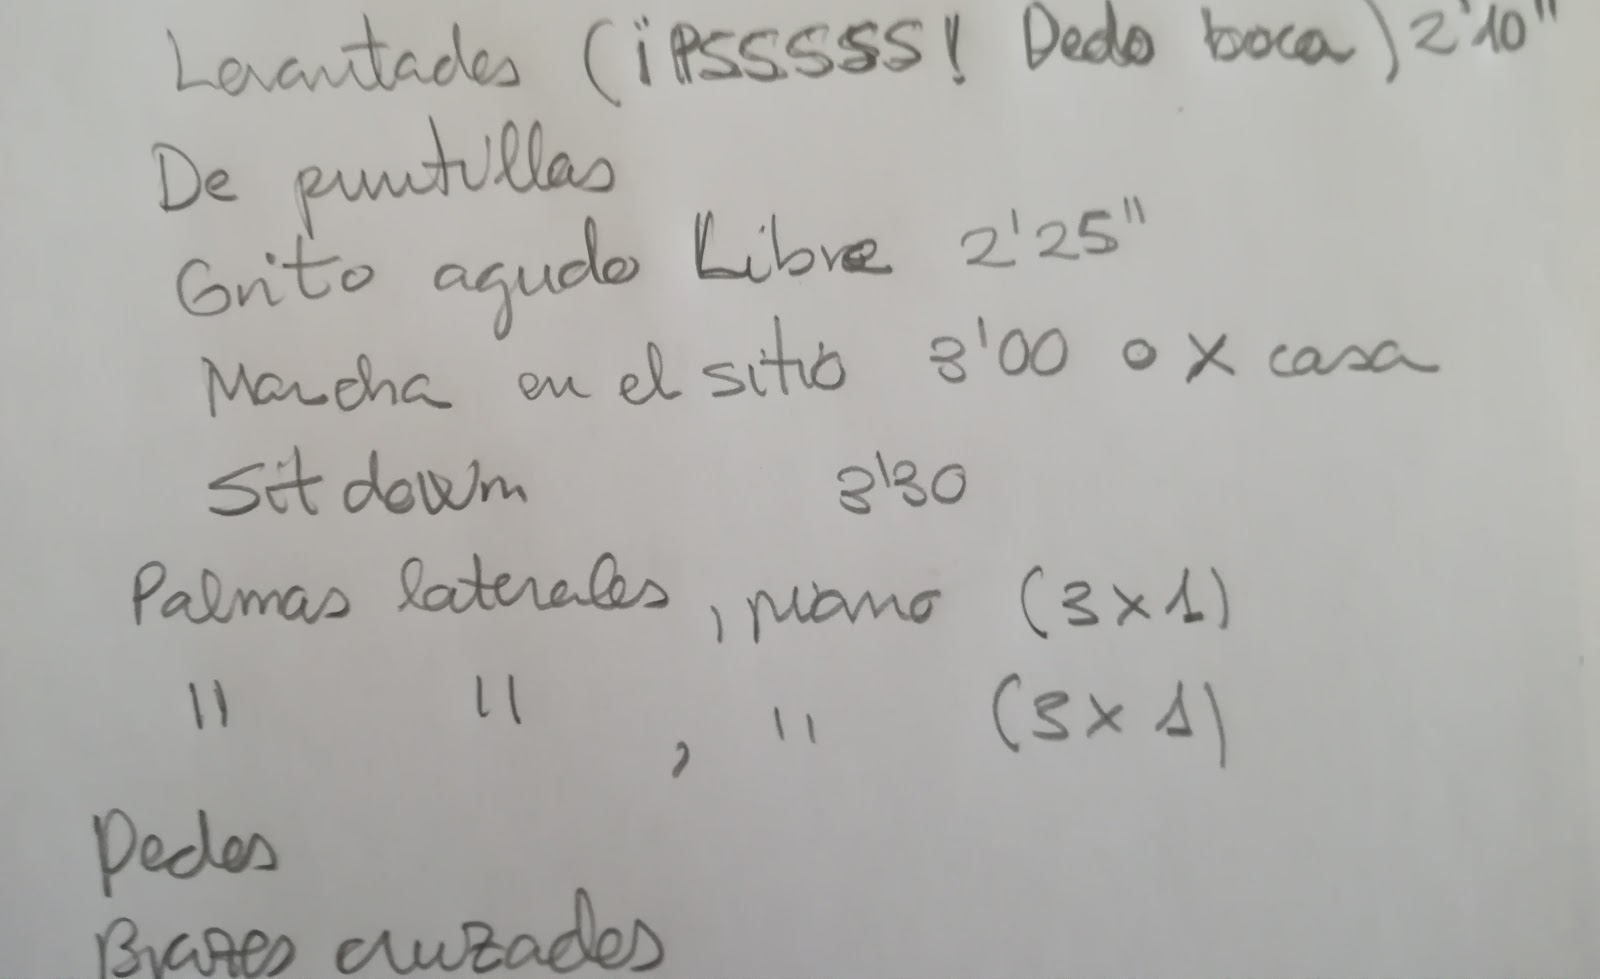 Levantados (¡PSSSSS! Dedo boca) 2'10"
De puntillas
Grito agudo Libre 2'25"
Marcha en el sitio 3'00 o X casa
Sit down 3'30
Palmas laterales, mano (3x1)
" " , " (3x1)
Dedos
Brazos cruzados